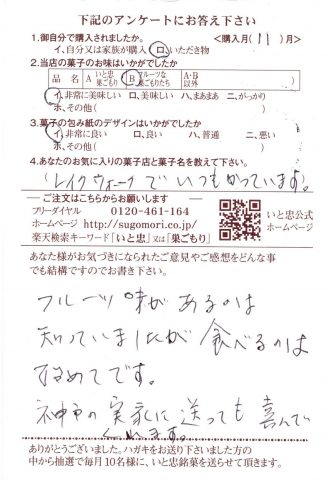 下記のアンケートにお答え下さい
1.御自分で購入されましたか。 <購入月( 11 )月>
イ.自分又は家族が購入 ロ.いただき物
2.当店の菓子のお味はいかがでしたか
品 名 A いと忠巣ごもり B フルーツな巣ごもりたち A・B以外
イ.非常に美味しい ロ.美味しい ハ.まあまあ ニ.がっかり
ホ.その他( )
3.菓子の包み紙のデザインはいかがでしたか
イ.非常に良い ロ.良い ハ.普通 ニ.悪い
ホ.その他( )
4.あなたのお気に入りの菓子店と菓子名を教えて下さい。
(レイクウォークでいつもかっています。)
ご注文はこちらからお願いします
フリーダイヤル 0120-461-164
ホームページ http://sugomori.co.jp/
楽天検索キーワード「いと忠」又は「巣ごもり」
いと忠公式
ホームページ
あなた様がお気づきになられたご意見やご感想をどんな事
でも結構ですのでお書き下さい。
フルーツ味があるのは
知っていましたが食べるのは
初めてです。
神戸の実家に送っても喜んで
くれます。
ありがとうございました。ハガキをお送り下さいました方の
中から抽選で毎月10名様に、いと忠銘菓を送らせて頂きます。